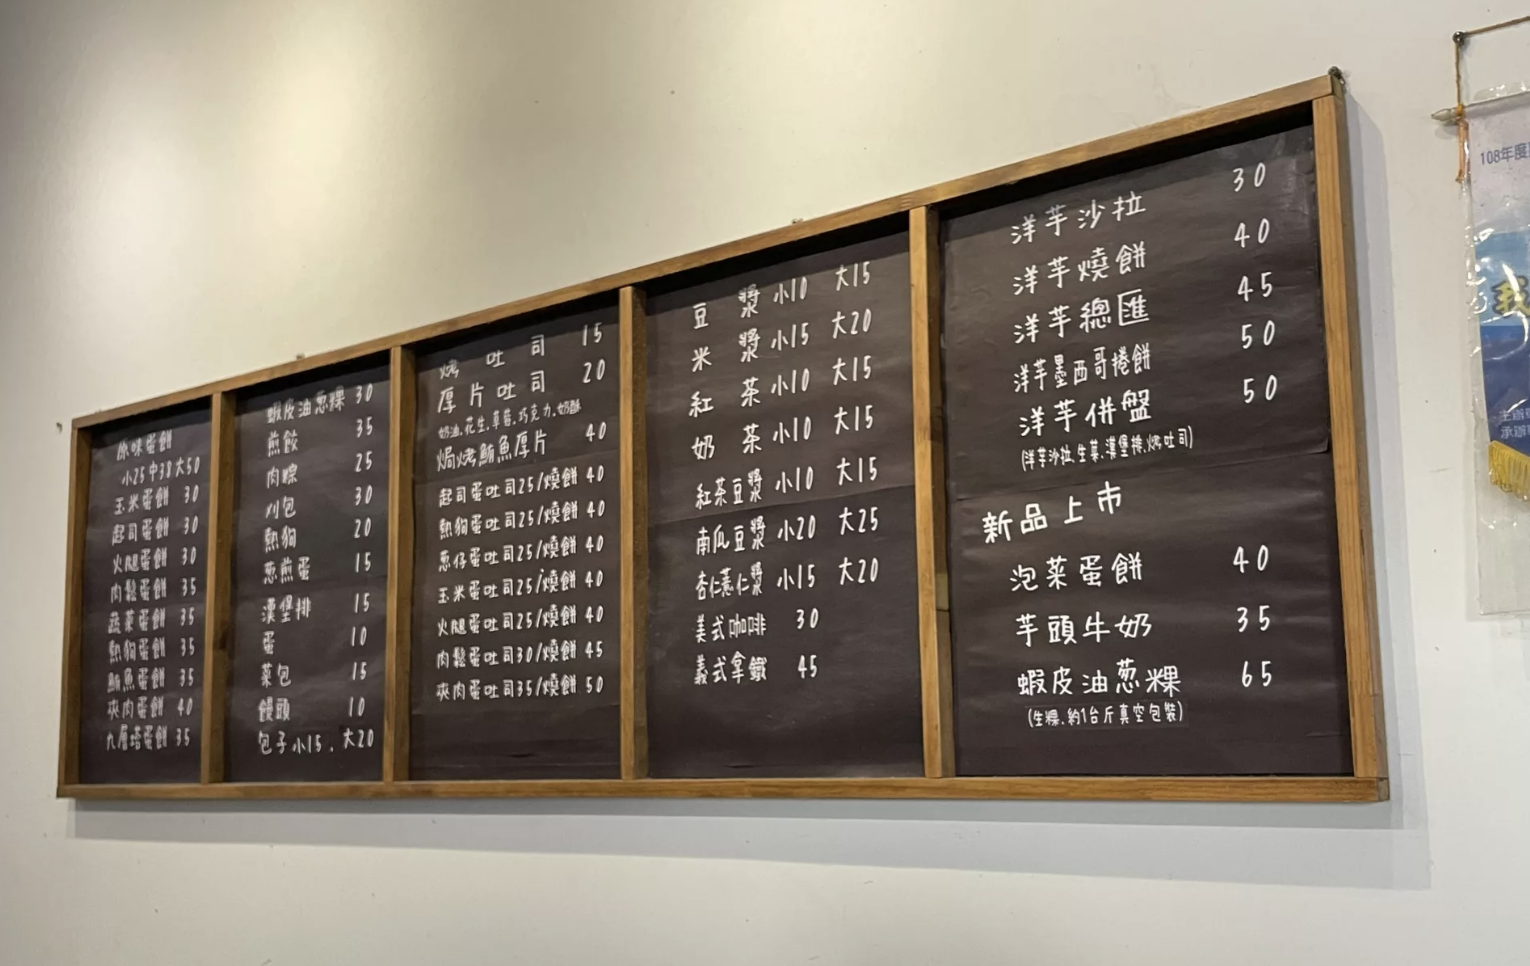 原味蛋餅
小25中30大50
玉米蛋餅 30
起司蛋餅 30
火腿蛋餅 30
肉鬆蛋餅 35
蔬菜蛋餅 35
熱狗蛋餅 35
鮪魚蛋餅 35
夾肉蛋餅 40
九層塔蛋餅 35
蝦皮油葱粿 30
煎餃 35
肉粽 25
刈包 30
熱狗 20
葱煎蛋 15
漢堡排 15
蛋 10
菜包 15
饅頭 10
包子小15.大20
烤吐司 15
厚片吐司 20
奶油.花生.草莓.巧克力.奶酥
焗烤鮪魚厚片 40
起司蛋吐司25/燒餅 40
熱狗蛋吐司25/燒餅 40
葱仔蛋吐司25/燒餅 40
玉米蛋吐司25/燒餅 40
火腿蛋吐司25/燒餅 40
肉鬆蛋吐司30/燒餅 45
夾肉蛋吐司35/燒餅 50
豆漿 小10 大15
米漿 小15 大20
紅茶 小10 大15
奶茶 小10 大15
紅茶豆漿 小10 大15
南瓜豆漿 小20 大25
杏仁薏仁漿 小15 大20
美式咖啡 30
義式拿鐵 45
洋芋沙拉 30
洋芋燒餅 40
洋芋總匯 45
洋芋墨西哥捲餅 50
洋芋併盤 50
(洋芋沙拉.生菜.漢堡排.烤吐司)
新品上市
泡菜蛋餅 40
芋頭牛奶 35
蝦皮油葱粿 65
(生粿.約1台斤真空包裝)
108年度